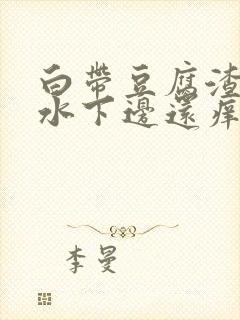 白帶豆腐渣
水下邊還痒
李曼